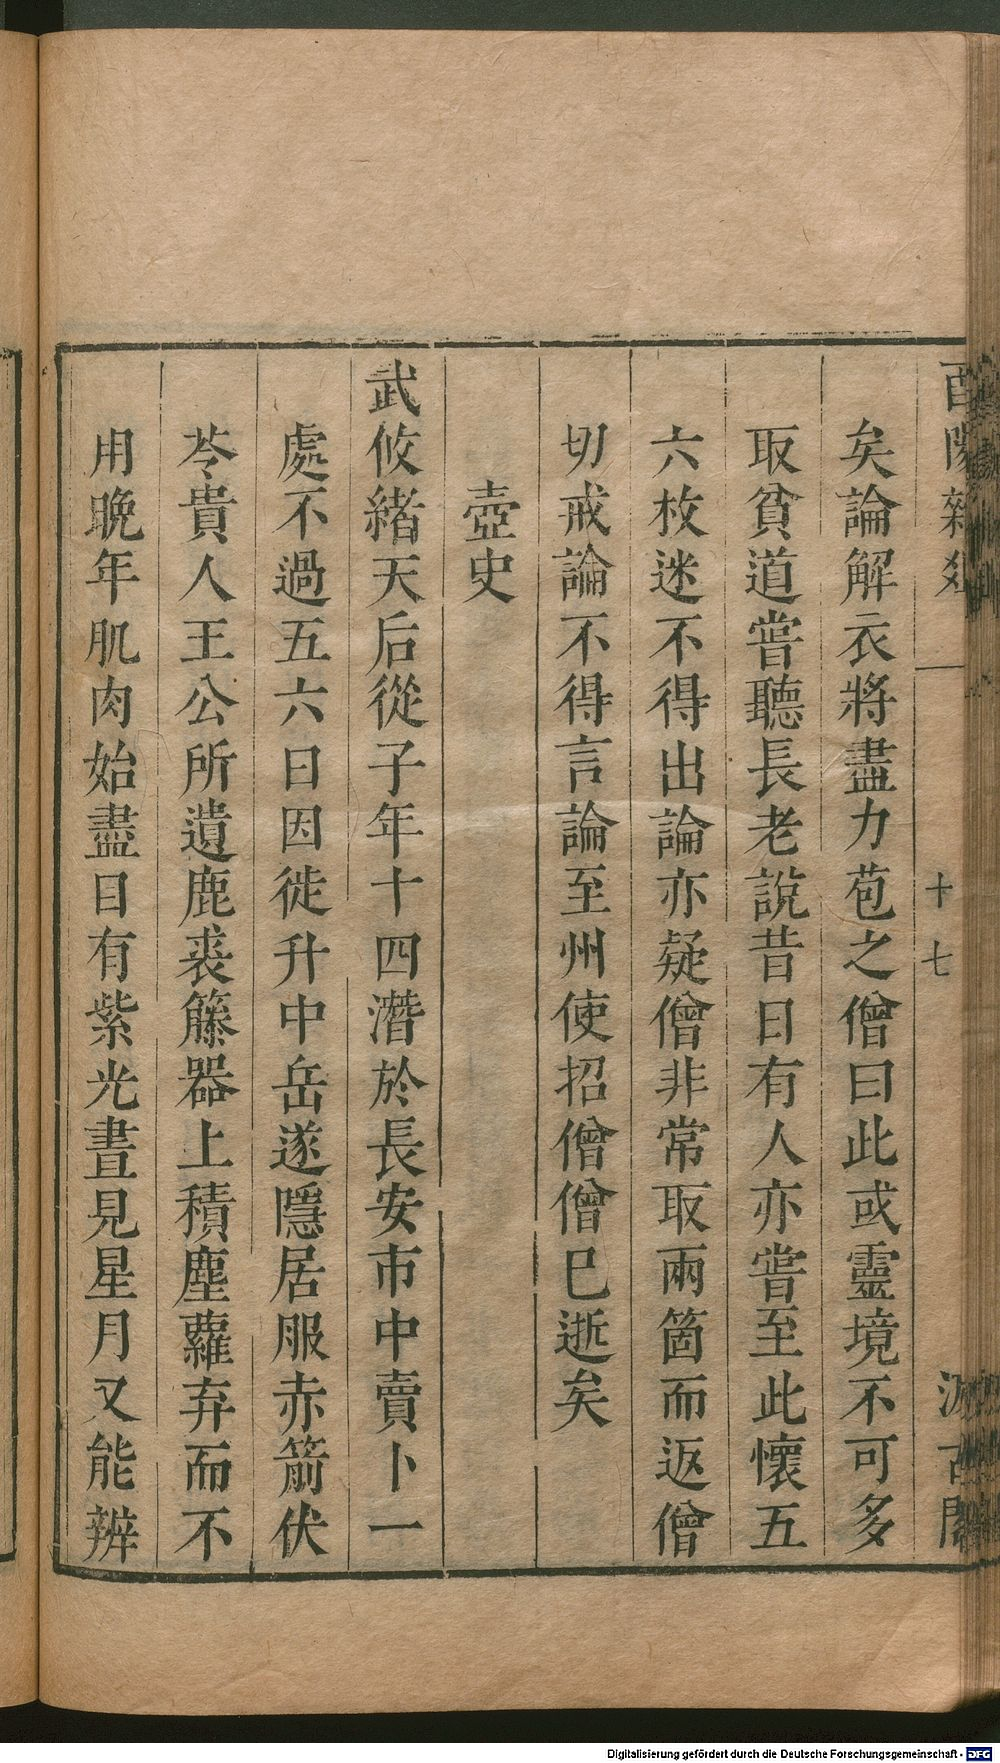 酉陽雜俎
十七
汲古閣
矣論解衣將盡力苞之僧曰此或靈境不可多
取貧道嘗聽長老說昔日有人亦嘗至此懷五
六枚迷不得出論亦疑僧非常取兩箇而返僧
切戒論不得言論至州使招僧僧巳逝矣
壺史
武攸緒天后從子年十四潛於長安市中賣卜一
處不過五六日因徙升中岳遂隱居服赤箭伏
苓貴人王公所遺鹿裘籐器上積塵蘿弃而不
用晚年肌肉始盡目有紫光晝見星月又能辨
Digitalisierung gefördert durch die Deutsche Forschungsgemeinschaft - DFG